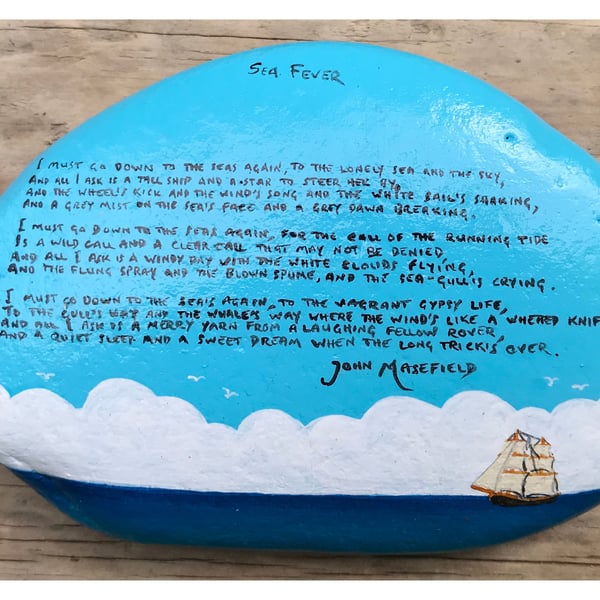 SEA FEVER
I MUST GO DOWN TO THE SEAS AGAIN, TO THE LONELY SEA AND THE SKY,
AND ALL I ASK IS A TALL SHIP AND A STAR TO STEER HER BY,
AND THE WHEEL'S KICK AND THE WIND'S SONG AND THE WHITE SAIL'S SHAKING,
AND A GREY MIST ON THE SEA'S FACE AND A GREY DAWN BREAKING.
I MUST GO DOWN TO THE SEAS AGAIN, FOR THE CALL OF THE RUNNING TIDE
IS A WILD CALL AND A CLEAR CALL THAT MAY NOT BE DENIED,
AND ALL I ASK IS A WINDY DAY WITH THE WHITE CLOUDS FLYING,
AND THE FLUNG SPRAY AND THE BLOWN SPUME, AND THE SEA-GULLS CRYING.
I MUST GO DOWN TO THE SEA'S AGAIN, TO THE VAGRANT GYPSY LIFE,
TO THE GULL'S WAY AND THE WHALE'S WAY WHERE THE WIND'S LIKE A WHETTED KNIF
AND ALL I ASK IS A MERRY YARN FROM A LAUGHING FELLOW ROVER,
AND A QUIET SLEEP AND A SWEET DREAM WHEN THE LONG TRICK'S OVER.
JOHN MASEFIELD